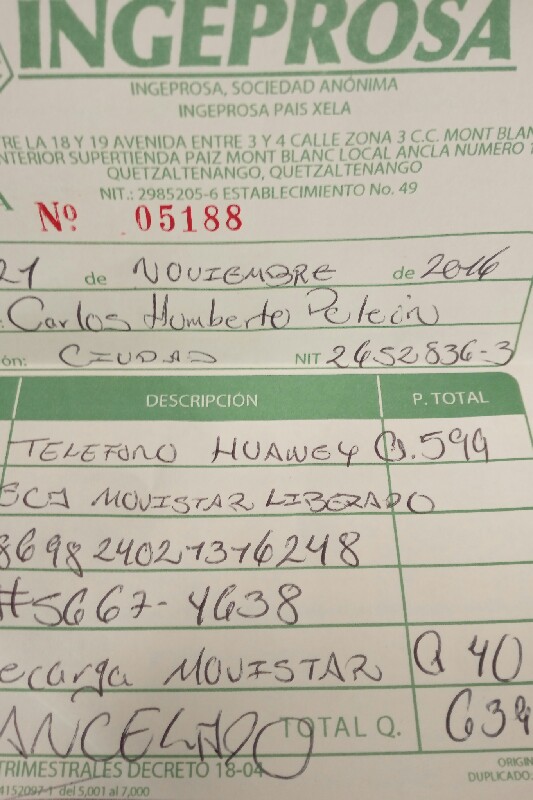 INGEPROSA
INGEPROSA, SOCIEDAD ANÓNIMA
INGEPROSA PAIS XELA
RE LA 18 Y 19 AVENIDA ENTRE 3 Y 4 CALLE ZONA 3 C.C. MONT BLAN
NTERIOR SUPERTIENDA PAIZ MONT BLANC LOCAL ANCLA NUMERO 1
QUETZALTENANGO, QUETZALTENANGO
NIT.: 2985205-6 ESTABLECIMIENTO No. 49
A
Nº 05188
21 de NOVIEMBRE de 2016
Carlos Humberto
ón: CIUDAD NIT 2652836-3
DESCRIPCIÓN P. TOTAL
TELEFONO HUAWEY Q.599
MOVISTAR LIBERADO
#5667-4638
ecarga MOVISTAR Q 40
ANCELADO TOTAL Q. 639
TRIMESTRALES DECRETO 18-04 ORIGIN
4152097-1 del 5,001 al 7,000 DUPLICADO: